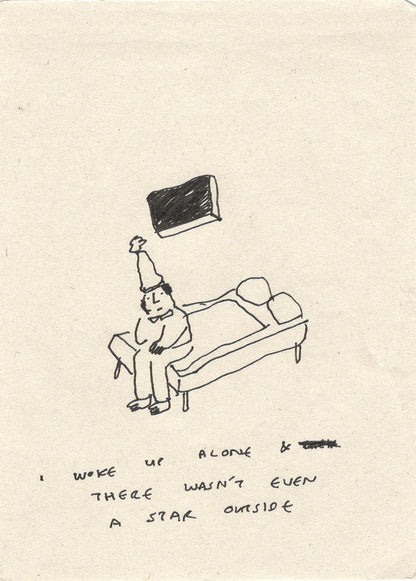 I WOKE UP ALONE &
THERE WASN'T EVEN
A STAR OUTSIDE